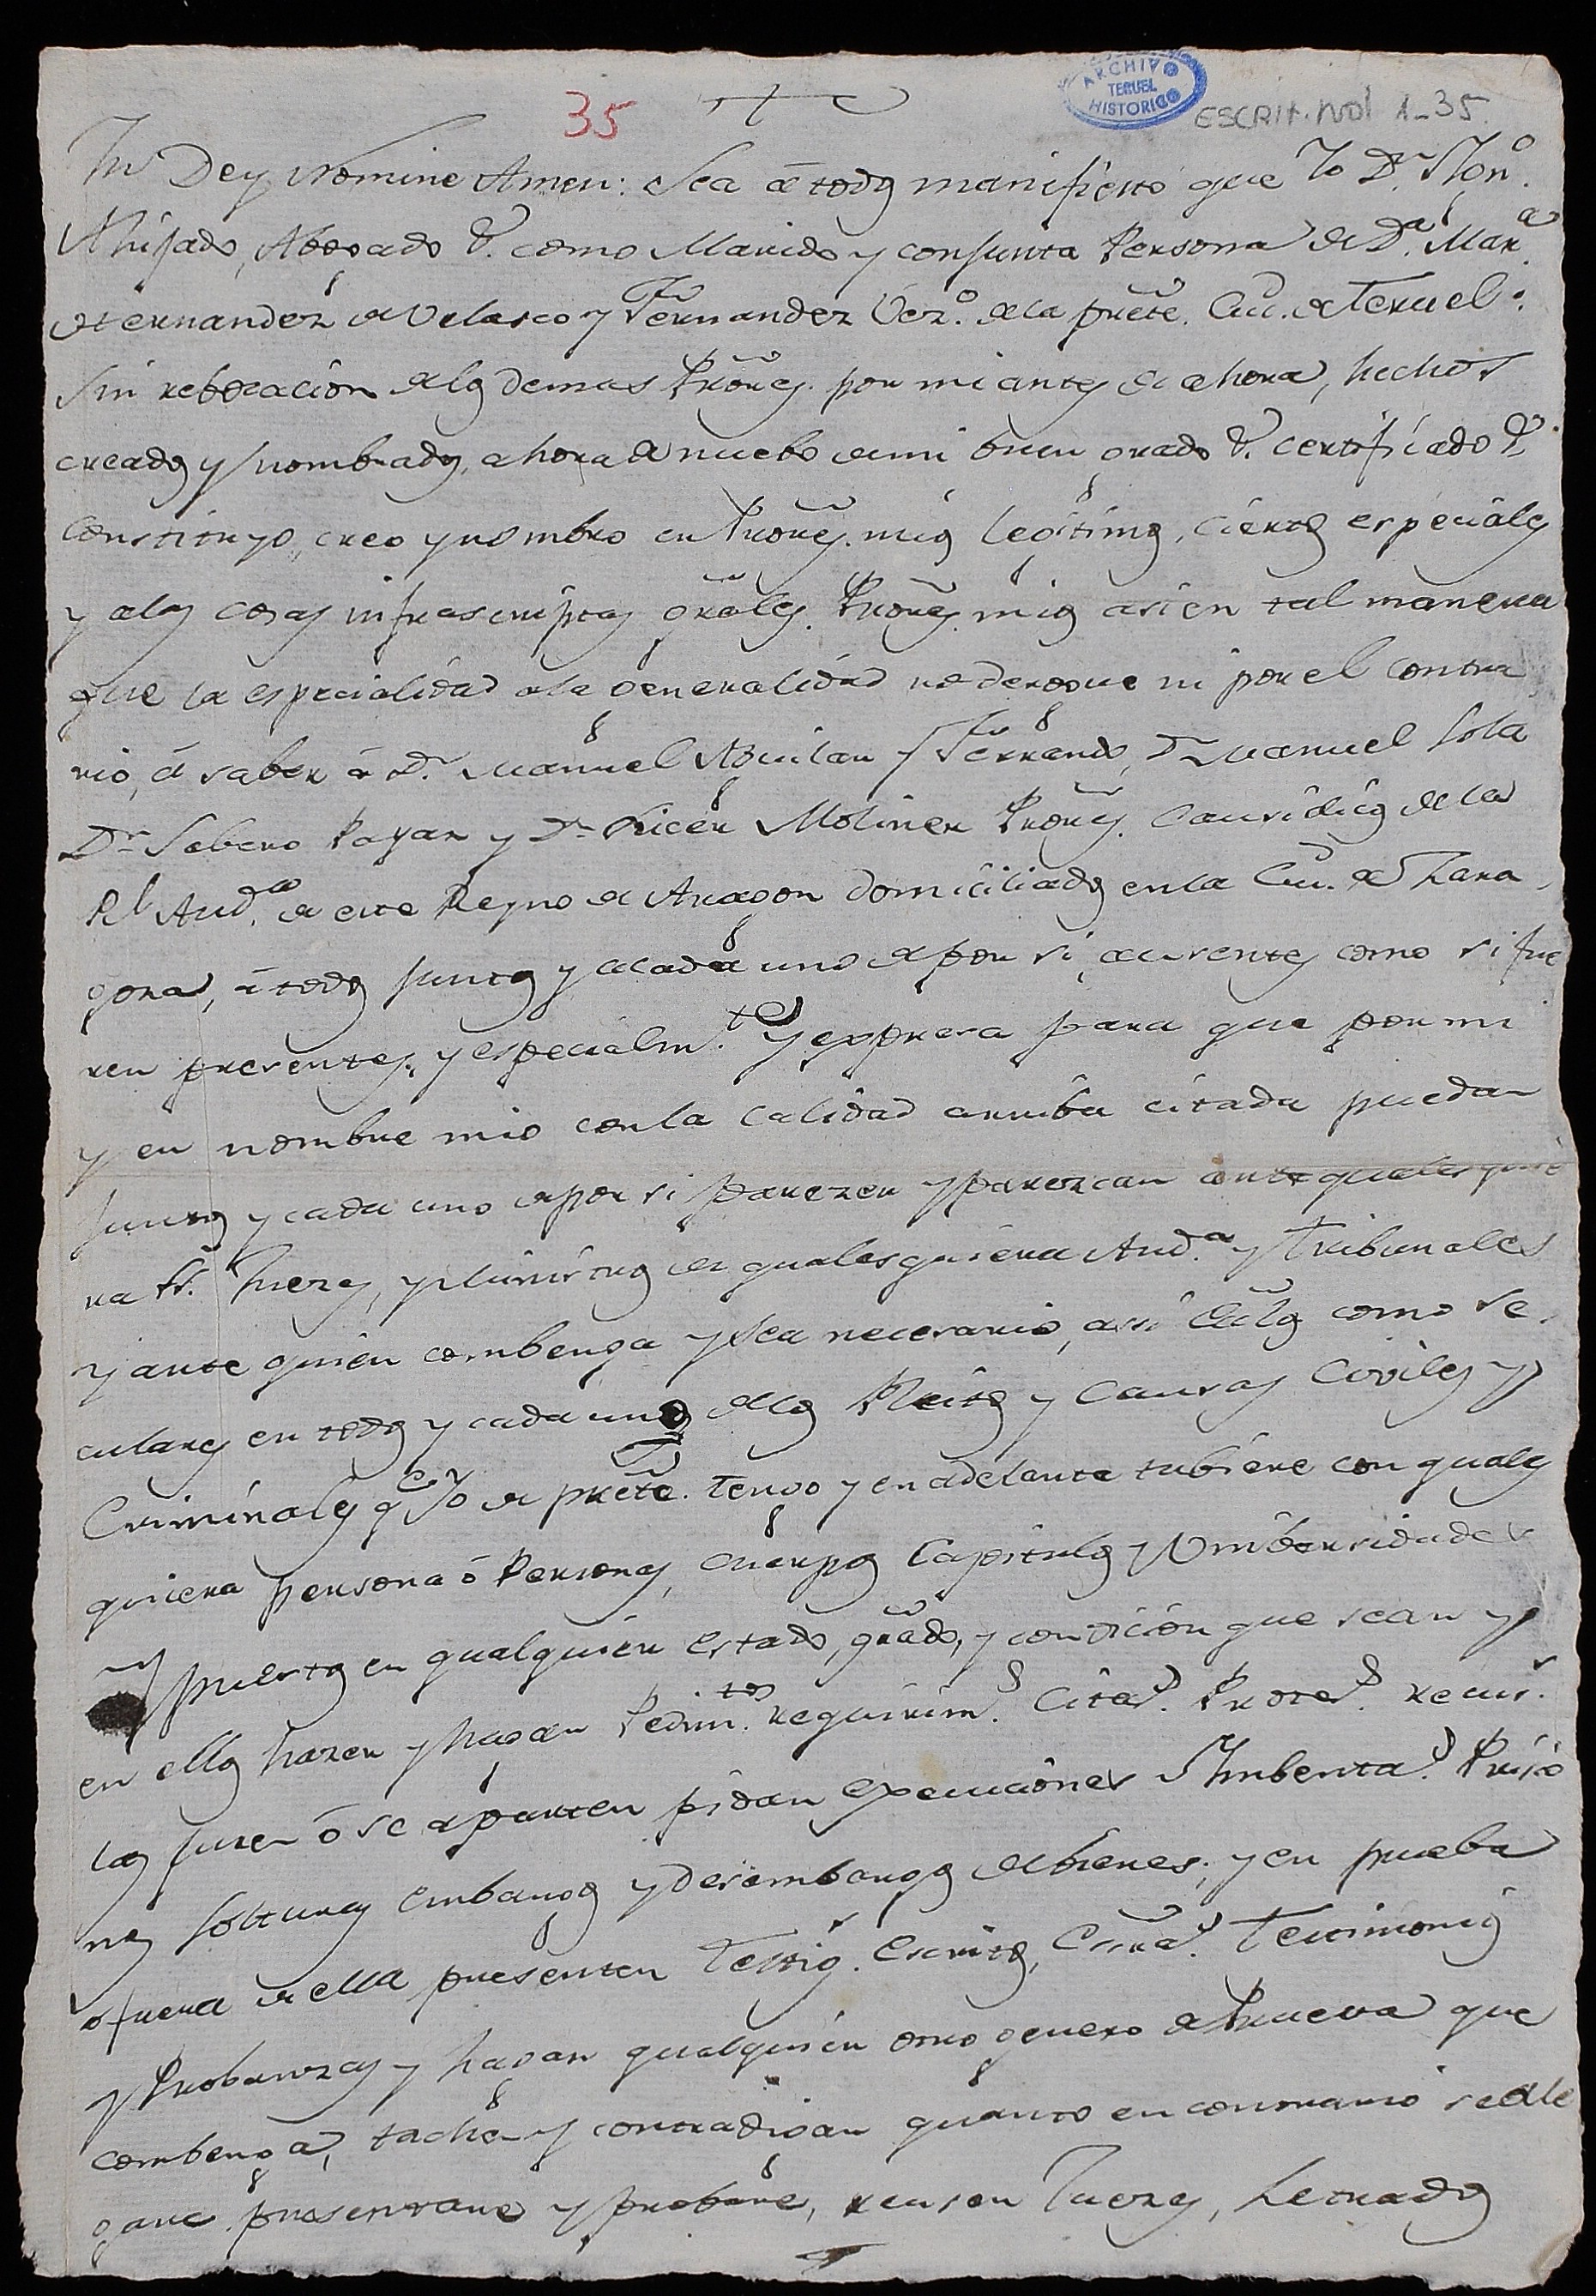 35
ARCHIVO
TERUEL
HISTORICO
ESCRIT. Not 1-35.
In Dey Nomine Amen: Sea á todos manifiesto que Yo Dn.
Ahijado, Abogado &. como Marido y conjunta Persona de Da. Mara.
Hernandez de Velasco y Fernandez Vezo. de la prete. Ciu. de Teruel:
Sin rebocacion de los demas Prores. por mi antes de ahora, hechos
creados y nombrados, ahora de nuebo de mi buen grado &. certificado &.
Constituyo, creo y nombro en Prores. mios legitimos, ciertos especiales
y a las cosas infrascriptas grales. Prores. mios asi en tal manera
que la especialidad a la generalidad no derogue ni por el contra
rio, á saber á Dn. Manuel Aguilar y Ferrando, Dn. Manuel Sola
Dn. Sebero Payar y Dn. Moliner Prores. Causidicos de la
Rl. Auda. de este Reyno de Aragon domiciliados en la Ciu. de Zara
goza, á todos juntos y a cada uno de por si, ausentes como si fue
ren presentes, y especialmte. y expresa para que por mi
y en nombre mio con la calidad arriba citada puedan
juntos y cada uno de por si parezer y parezcan ante qualesquie
ra Ss. Juezes, y Ministros de qualesquiera Auda. y Tribunales
y ante quien combenga y sea necesario, assi Eccos como se
culares en todos y cada uno de los Pleitos y Causas Civiles y
Criminales qe. Yo de prete. tengo y en adelante tubiere con quales
quiera persona ó Personas, cuerpos Capitulos y Unibersidades
puestos en qualquier estado, grado, y condicion que sean y
en ellos hazer y hagan Pedimtos. requirims. Citas. Protes. recus.
las juren ó se aparten pidan execuciones Imbentas. Prisio
nes solturas embargos y desembargos de bienes; y en prueba
o fuera de ella presenten Testigs. Escritos, Essras. Testimonios
y Probanzas y hagan qualquier otro genero de Prueva que
combenga, tachen y contradigan quanto en contrario se ale
gare presentare y probare, recusen Juezes, Letrados